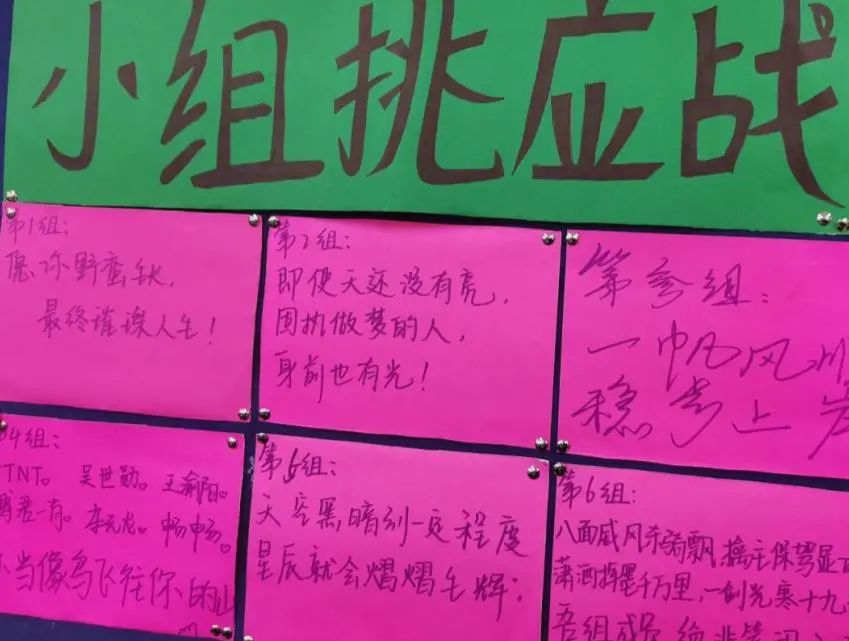 小组挑应战
第1组:
愿你野蛮生长,
最终璀璨人生!
第2组:
即使天还没有亮,
固执做梦的人,
身前也有光!
第叁组:
一帆风顺
稳步上
第4组:
TNT。吴世勋。王渝阳。
李元龙。畅畅。
当像鸟飞往你的山
第5组:
天空黑暗到一定程度
星辰就会熠熠生辉;
第6组:
八面威风杀骑飘,擒主保驾显
潇洒挥墨千万里,一剑光寒十九
吾组成员